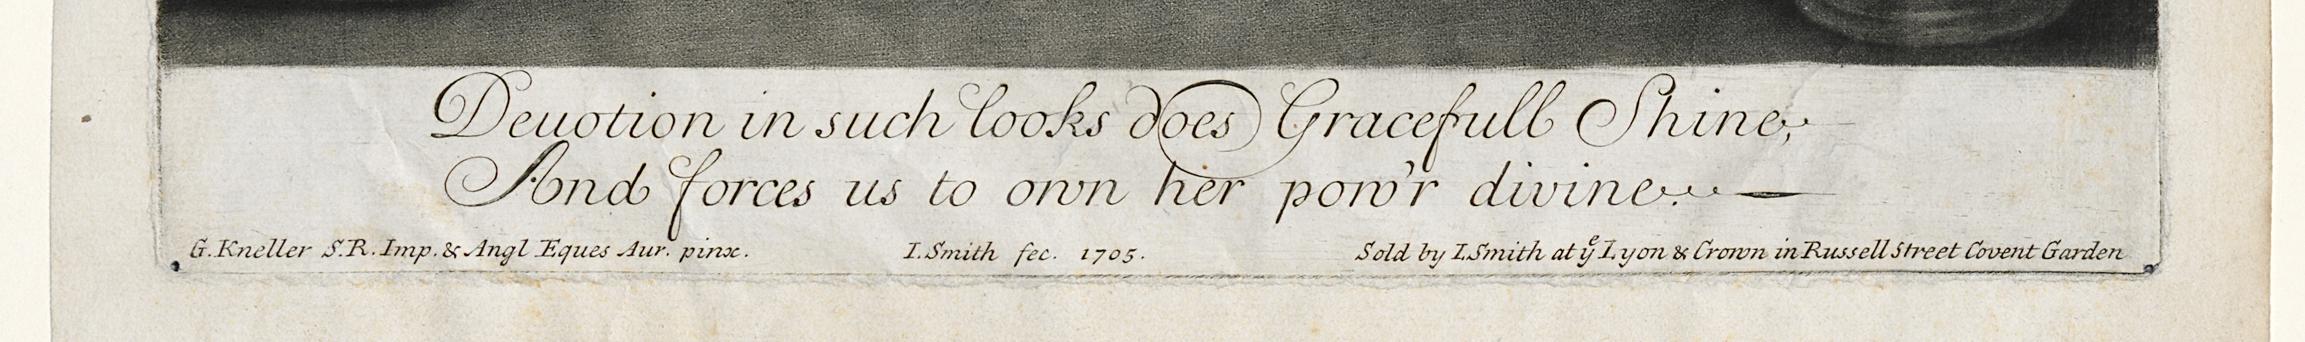 Deuotion in such looks does Gracefull Shine,
And forces us to own her pow'r divine.
G. Kneller S.R. Imp. & Angl Eques Aur. pinx. I. Smith fec. 1705. Sold by I. Smith at yͤ Lyon & Crown in Russell Street Covent Garden